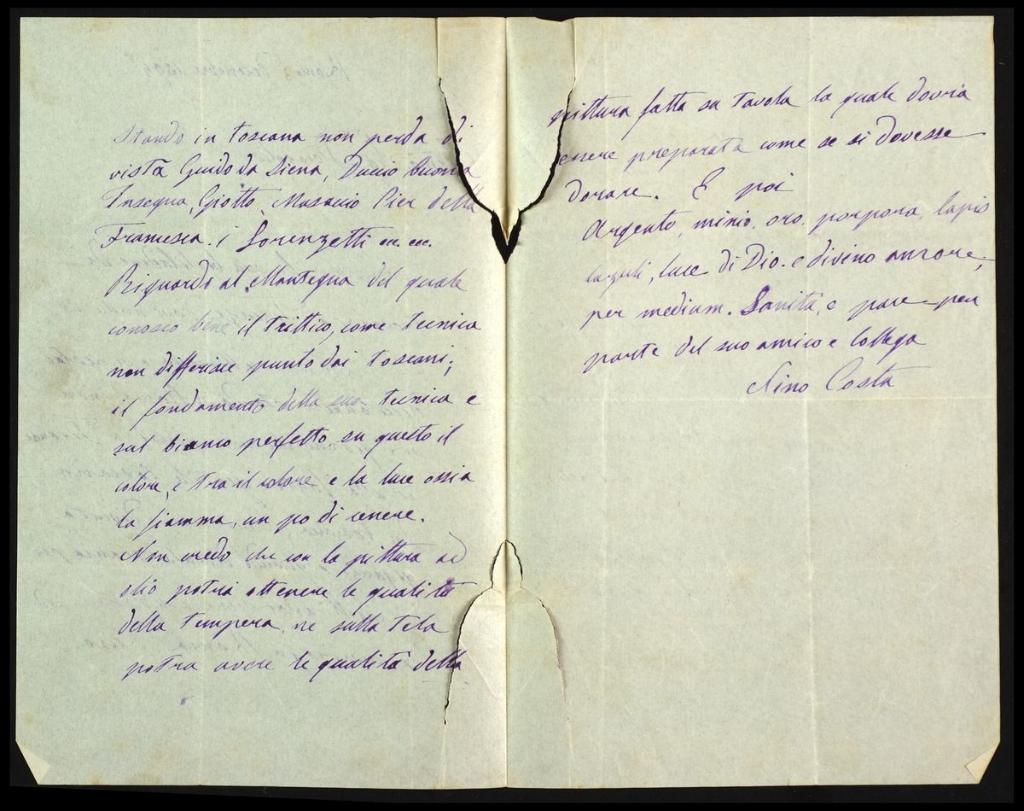 Stando in Toscana non perda di
vista Guido da Siena, Duccio Buonin
Insegna, Giotto, Masaccio Pier della
Francesca. i Lorenzetti ec. ec.
Riguardo al Mantegna del quale
conosco bene il trittico, come tecnica
non differisce punto dai toscani;
il fondamento della sua tecnica e
sul bianco perfetto su questo il
colore, e tra il colore e la luce ossia
la fiamma, un po di cenere.
Non credo che con la pittura ad
olio potrà ottenere le qualità
della tempera, ne sulla tela
potra avere le qualità della
pittura fatta su tavola la quale dovria
essere preparata come se si dovesse
dorare. E poi
Argento, minio, oro, porpora, lapis
lazzuli, luce di Dio. e divino amore,
per medium. Sanità, e pace per
parte del suo amico e collega
Nino Costa